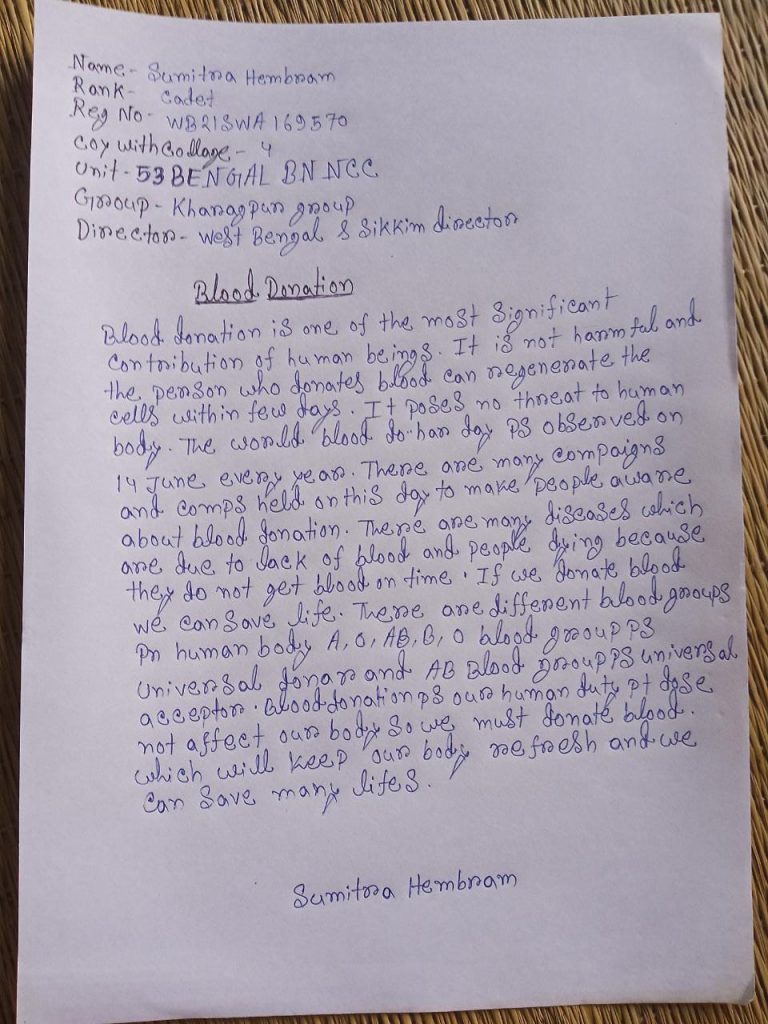 Name- Sumitra Hembram
Rank- Cadet
Reg No- WB21SWA169570
Coy with Collage- 4
Unit- 53 BENGAL BN NCC
Group- Kharagpur group
Director- West Bengal & Sikkim director
Blood Donation
Blood donation is one of the most significant
contribution of human beings. It is not harmful and
the person who donates blood can regenerate the
cells within few days. It poses no threat to human
body. The world blood do-nar day Ps observed on
14 June every year. There are many compaigns
and comps held on this day to make people aware
about blood donation. There are many diseases which
are due to lack of blood and people dying because
they do not get blood on time. If we donate blood
we can save life. There are different blood groups
Pn human body A, O, AB, B, O blood group Ps
universal donar and AB Blood group Ps universal
acceptor. Blood donation Ps our human duty Pt dose
not affect our body so we must donate blood.
which will keep our body refresh and we
can save many lifes.
Sumitra Hembram